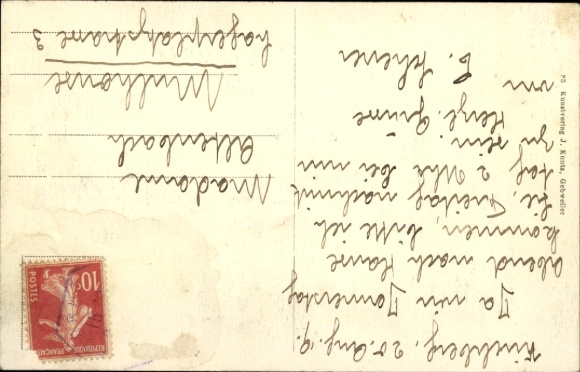 Kirchberg, 20. Aug. 19.
Da wir Donnerstag
abend nach Hause
kommen, bitte ich
Sie, Freitag nachmit
tag 2 Uhr bei mir
zu sein.
Herzl. Grüsse
von
Kunstverlag J. Kuntz, Gebweiler
10c
POSTES
REPUBLIQUE FRANÇAISE
Madame
Altenbach
Mulhouse
Lagerplatzstrasse 3